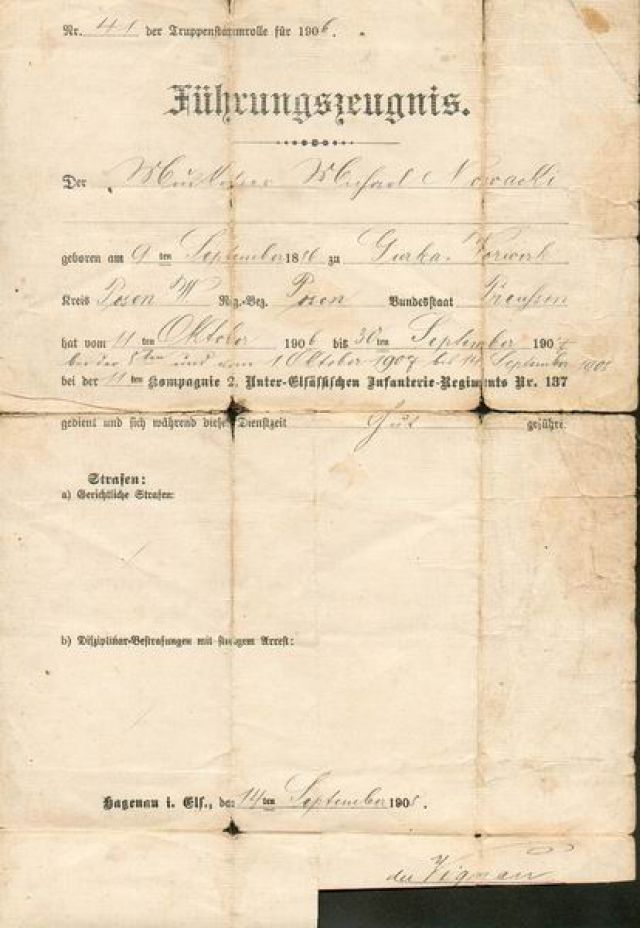 Nr. 41 der Truppenstammrolle für 1906.
Führungszeugnis.
Der Musketier Michael Nowacki
geboren am 9 ten September 1886 zu Gurka-Vorwerk
Kreis Posen W Rg.-Bez. Posen Bundesstaat Preußen
hat vom 11 ten Oktober 1906 bis 30 ten September 1907
bei der 8ten und vom 1 Oktober 1907 bis 14 September 1908
bei der 11 ten Kompagnie 2. Unter-Elsässischen Infanterie-Regiments Nr. 137
gedient und sich während dieser Dienstzeit Gut geführt.
Strafen:
a) Gerichtliche Strafen:
b) Disziplinar-Bestrafungen mit strengem Arrest:
Hagenau i. Els., den 14 ten September 1908.